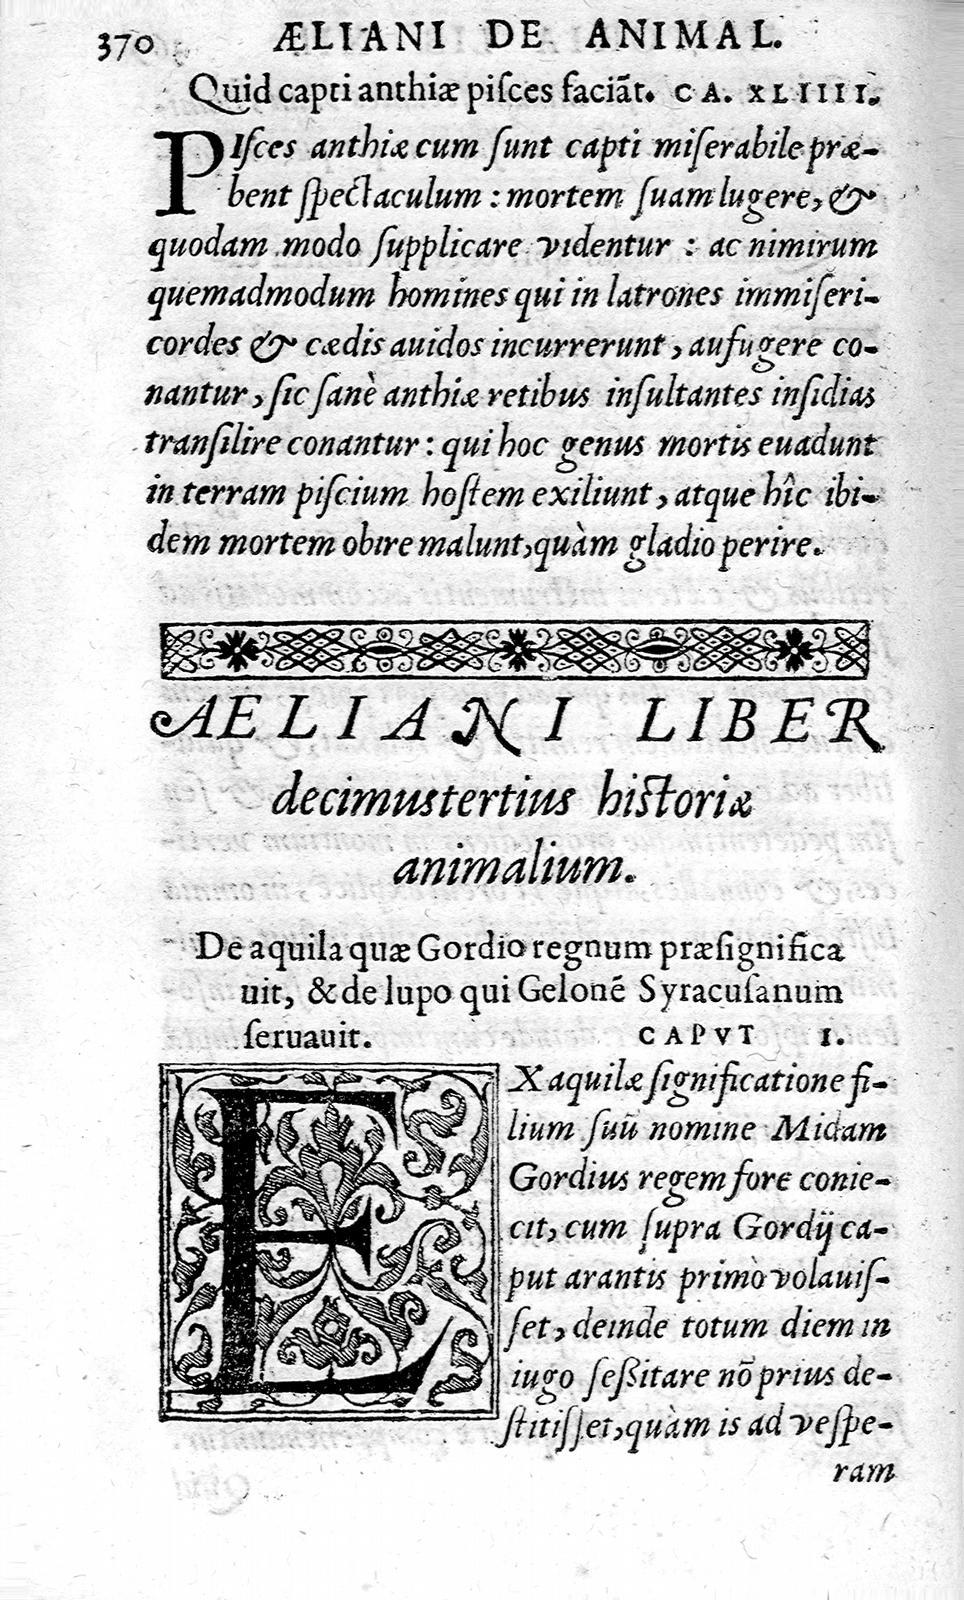 370 ÆLIANI DE ANIMAL.
Quid capti anthiæ piſces faciāt. CA. XLIIII.
PIſces anthiæ cum ſunt capti miſerabile præ-
bent ſpectaculum : mortem ſuam lugere, &
quodam modo ſupplicare videntur : ac nimirum
quemadmodum homines qui in latrones immiſeri-
cordes & cædis auidos incurrerunt, aufugere co-
nantur, ſic ſanè anthiæ retibus inſultantes inſidias
tranſilire conantur : qui hoc genus mortis euadunt
in terram piſcium hoſtem exiliunt, atque hîc ibi-
dem mortem obire malunt, quàm gladio perire.
AELIANI LIBER
decimustertius historiæ
animalium.
De aquila quæ Gordio regnum præſignifica
uit, & de lupo qui Gelonē Syracuſanum
ſeruauit. CAPVT I.
EX aquilæ ſignificatione fi-
lium ſuū nomine Midam
Gordius regem fore conie-
cit, cum ſupra Gordij ca-
put arantis primò volauiſ-
ſet, deinde totum diem in
iugo ſeßitare nō prius de-
ſtitiſſet, quàm is ad veſpe-
ram